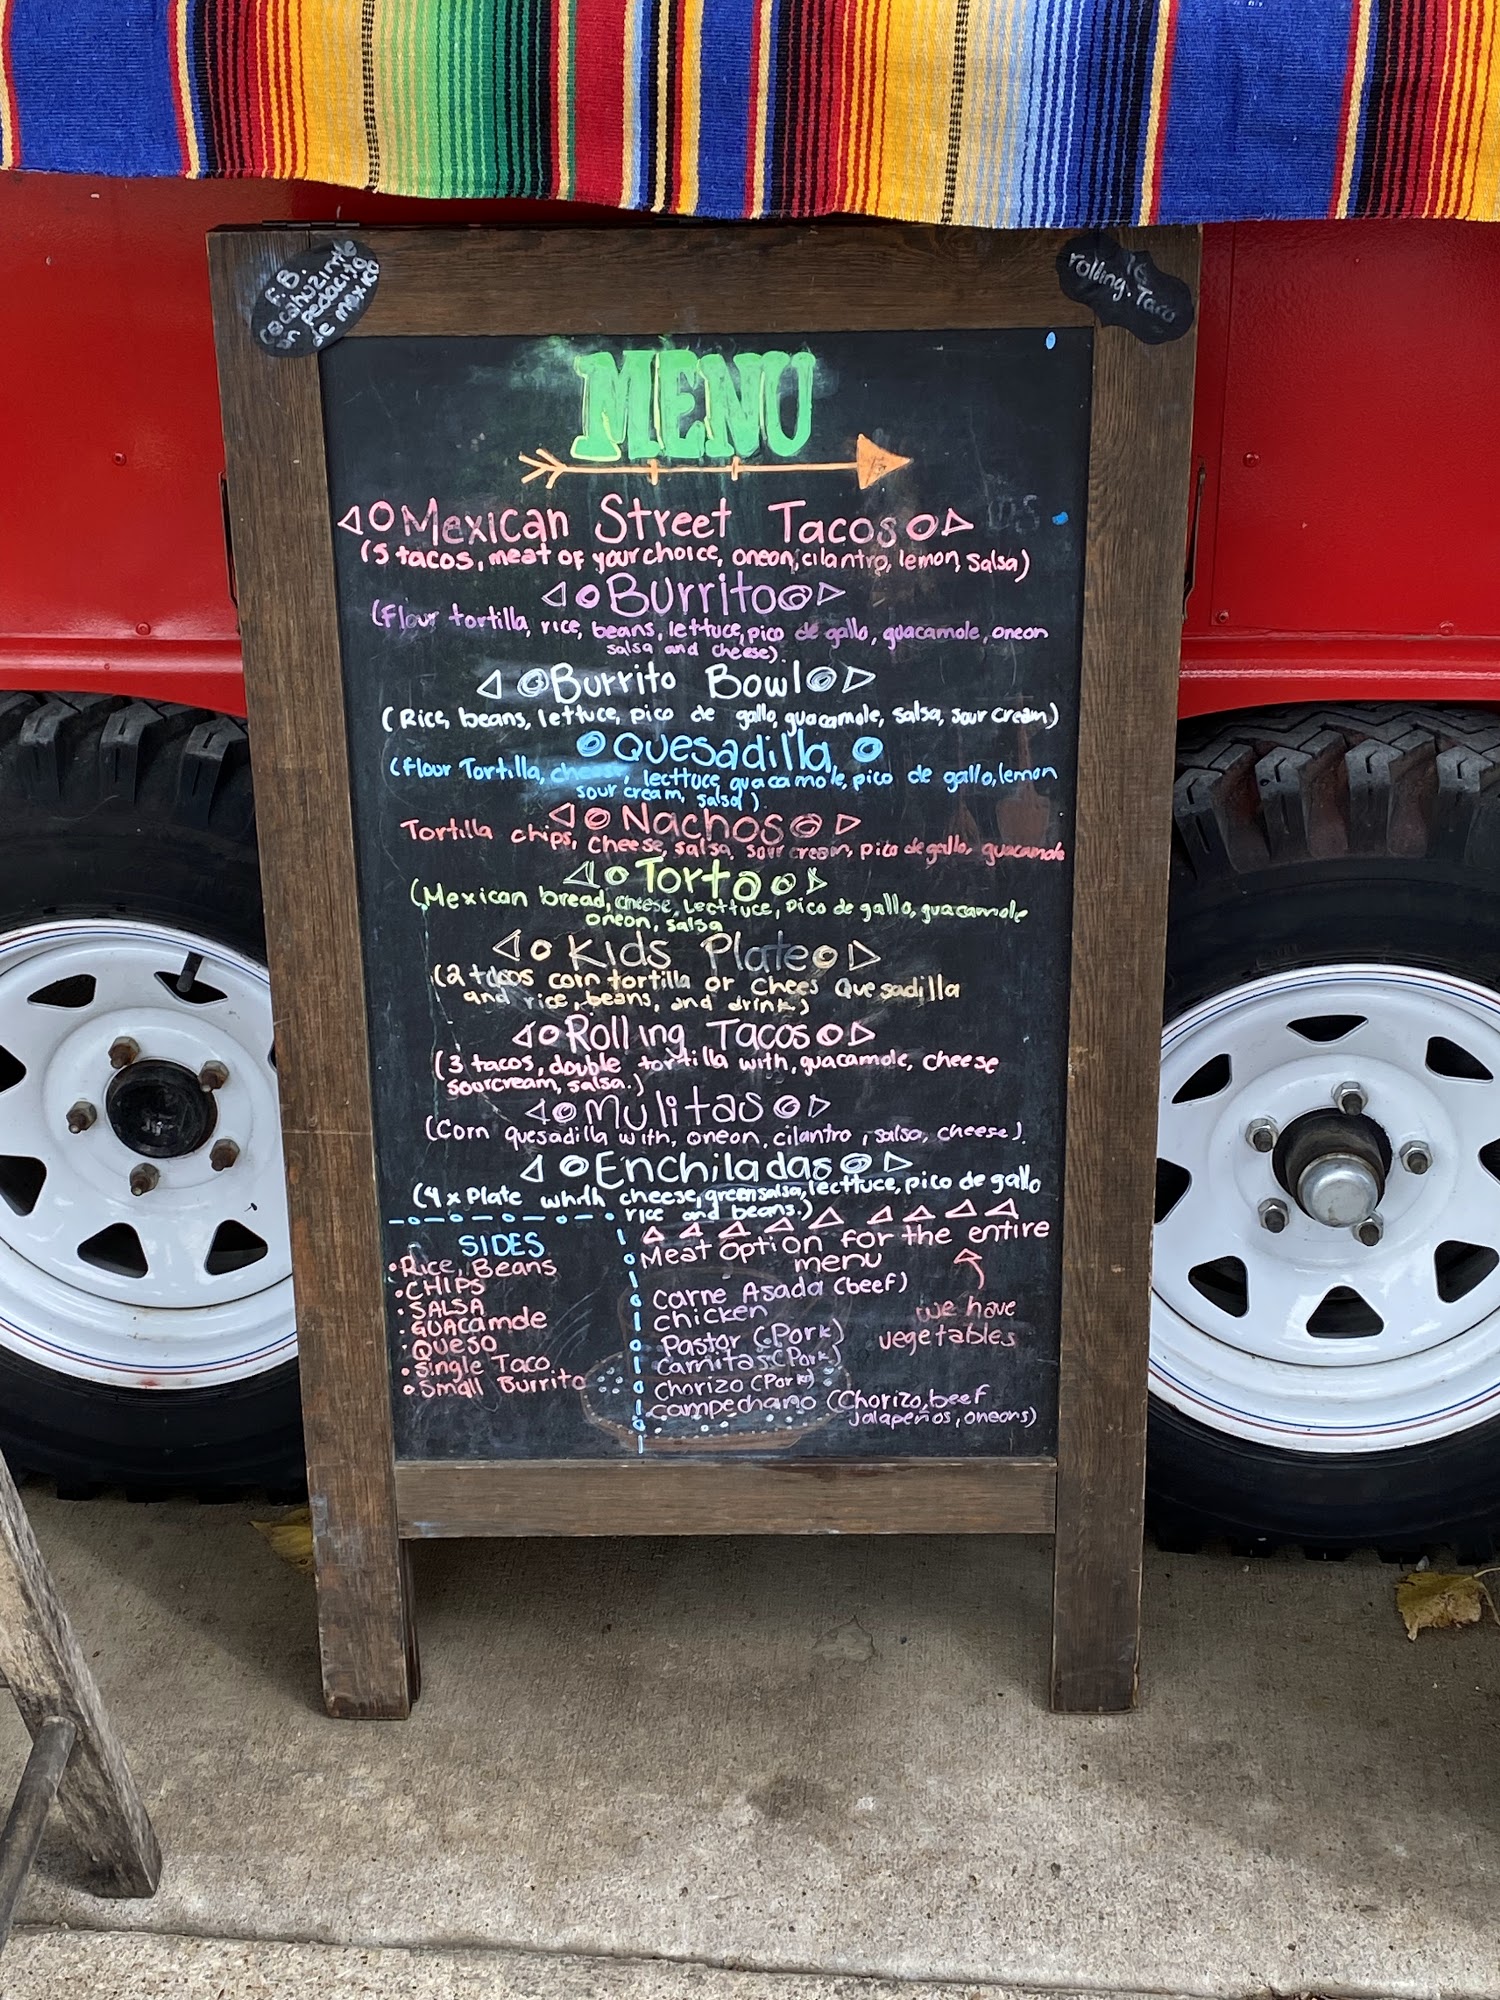 F.B.
cocahuzinte
un pedacito
de mexico
IG
rolling.Taco
MENU
Mexican Street Tacos
(5 tacos, meat of your choice, oneon, cilantro, lemon, salsa)
Burrito
(Flour tortilla, rice, beans, lettuce, pico de gallo, guacamole, oneon
salsa and cheese)
Burrito Bowl
(Rice, beans, lettuce, pico de gallo, guacamole, salsa, sour cream)
Quesadilla
(Flour Tortilla, cheese, lecttuce, guacamole, pico de gallo, lemon
sour cream, salsa)
Nachos
Tortilla chips, cheese, salsa, sour cream, pico de gallo, guacamole
Torta
(Mexican bread, cheese, lecttuce, pico de gallo, guacamole
oneon, salsa
Kids Plate
(2 tacos corn tortilla or chees Quesadilla
and rice, beans, and drink)
Rolling Tacos
(3 tacos, double tortilla with, guacamole, cheese
sourcream, salsa.)
Mulitas
(Corn quesadilla with, oneon, cilantro, salsa, cheese)
Enchiladas
(4 x Plate cheese, green salsa, lecttuce, pico de gallo
rice and beans.)
SIDES
• Rice, Beans
• CHIPS
• SALSA
• GUACamole
• QUESO
• Single Taco
• Small Burrito
Meat option for the entire
menu
Carne Asada (beef)
chicken
Pastor (Pork)
Carnitas (Pork)
Chorizo (Pork)
Campechano (Chorizo, beef
Jalapeños, oneons)
we have
vegetables